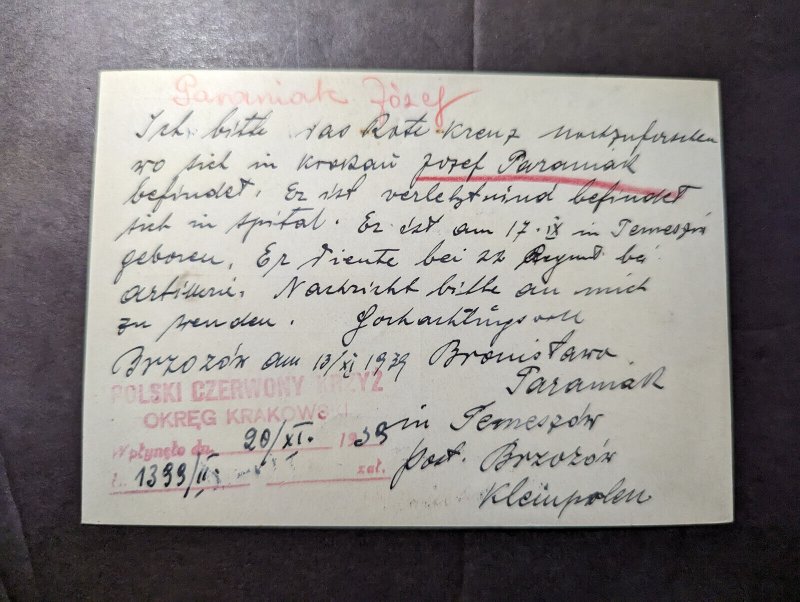 Paraniak Józef
Ich bitte das Rote Kreuz nachzuforschen
wo sich in Krakau Józef Paraniak
befindet. Er ist verletzt und befindet
sich in spital. Er ist am 17. IX in Temeszów
geboren. Er diente bei 22 bei
artillerie. Nachricht bitte an mich
zu wenden. Hochachtungsvoll
Brzozów am 13/XI 1939 Bronisława
Paraniak
POLSKI CZERWONY KRZYŻ
OKRĘG KRAKOWSKI
in Temeszów
Wpłynęło dn. 20/XI. 1939
post. Brzozów
L. 1399/II. zał.
Kleinpolen